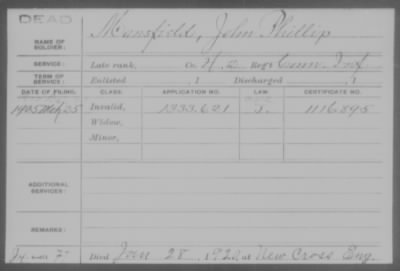 DEAD
NAME OF SOLDIER: Mansfield, John Phillip
SERVICE: Late rank, Co. H, 2 Reg't Conn. Inf
TERM OF SERVICE: Enlisted , 1 Discharged , 1
DATE OF FILING. CLASS. APPLICATION NO. LAW. CERTIFICATE NO.
1905 Mch 25 Invalid, 1333.621 1116.895
Widow,
Minor,
ADDITIONAL SERVICES:
REMARKS:
Died Jan 28, 192 at New Cross Eng